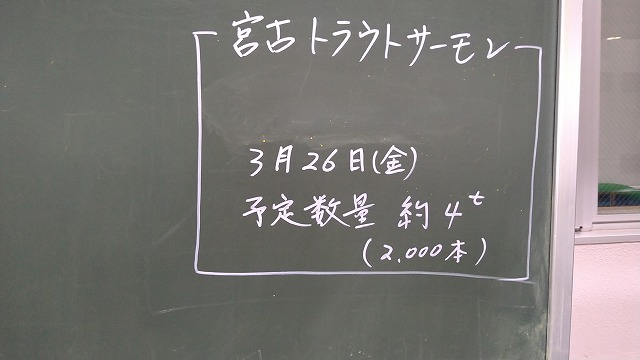 宮古トラウトサーモン
3月26日(金)
予定数量 約4t
(2.000本)